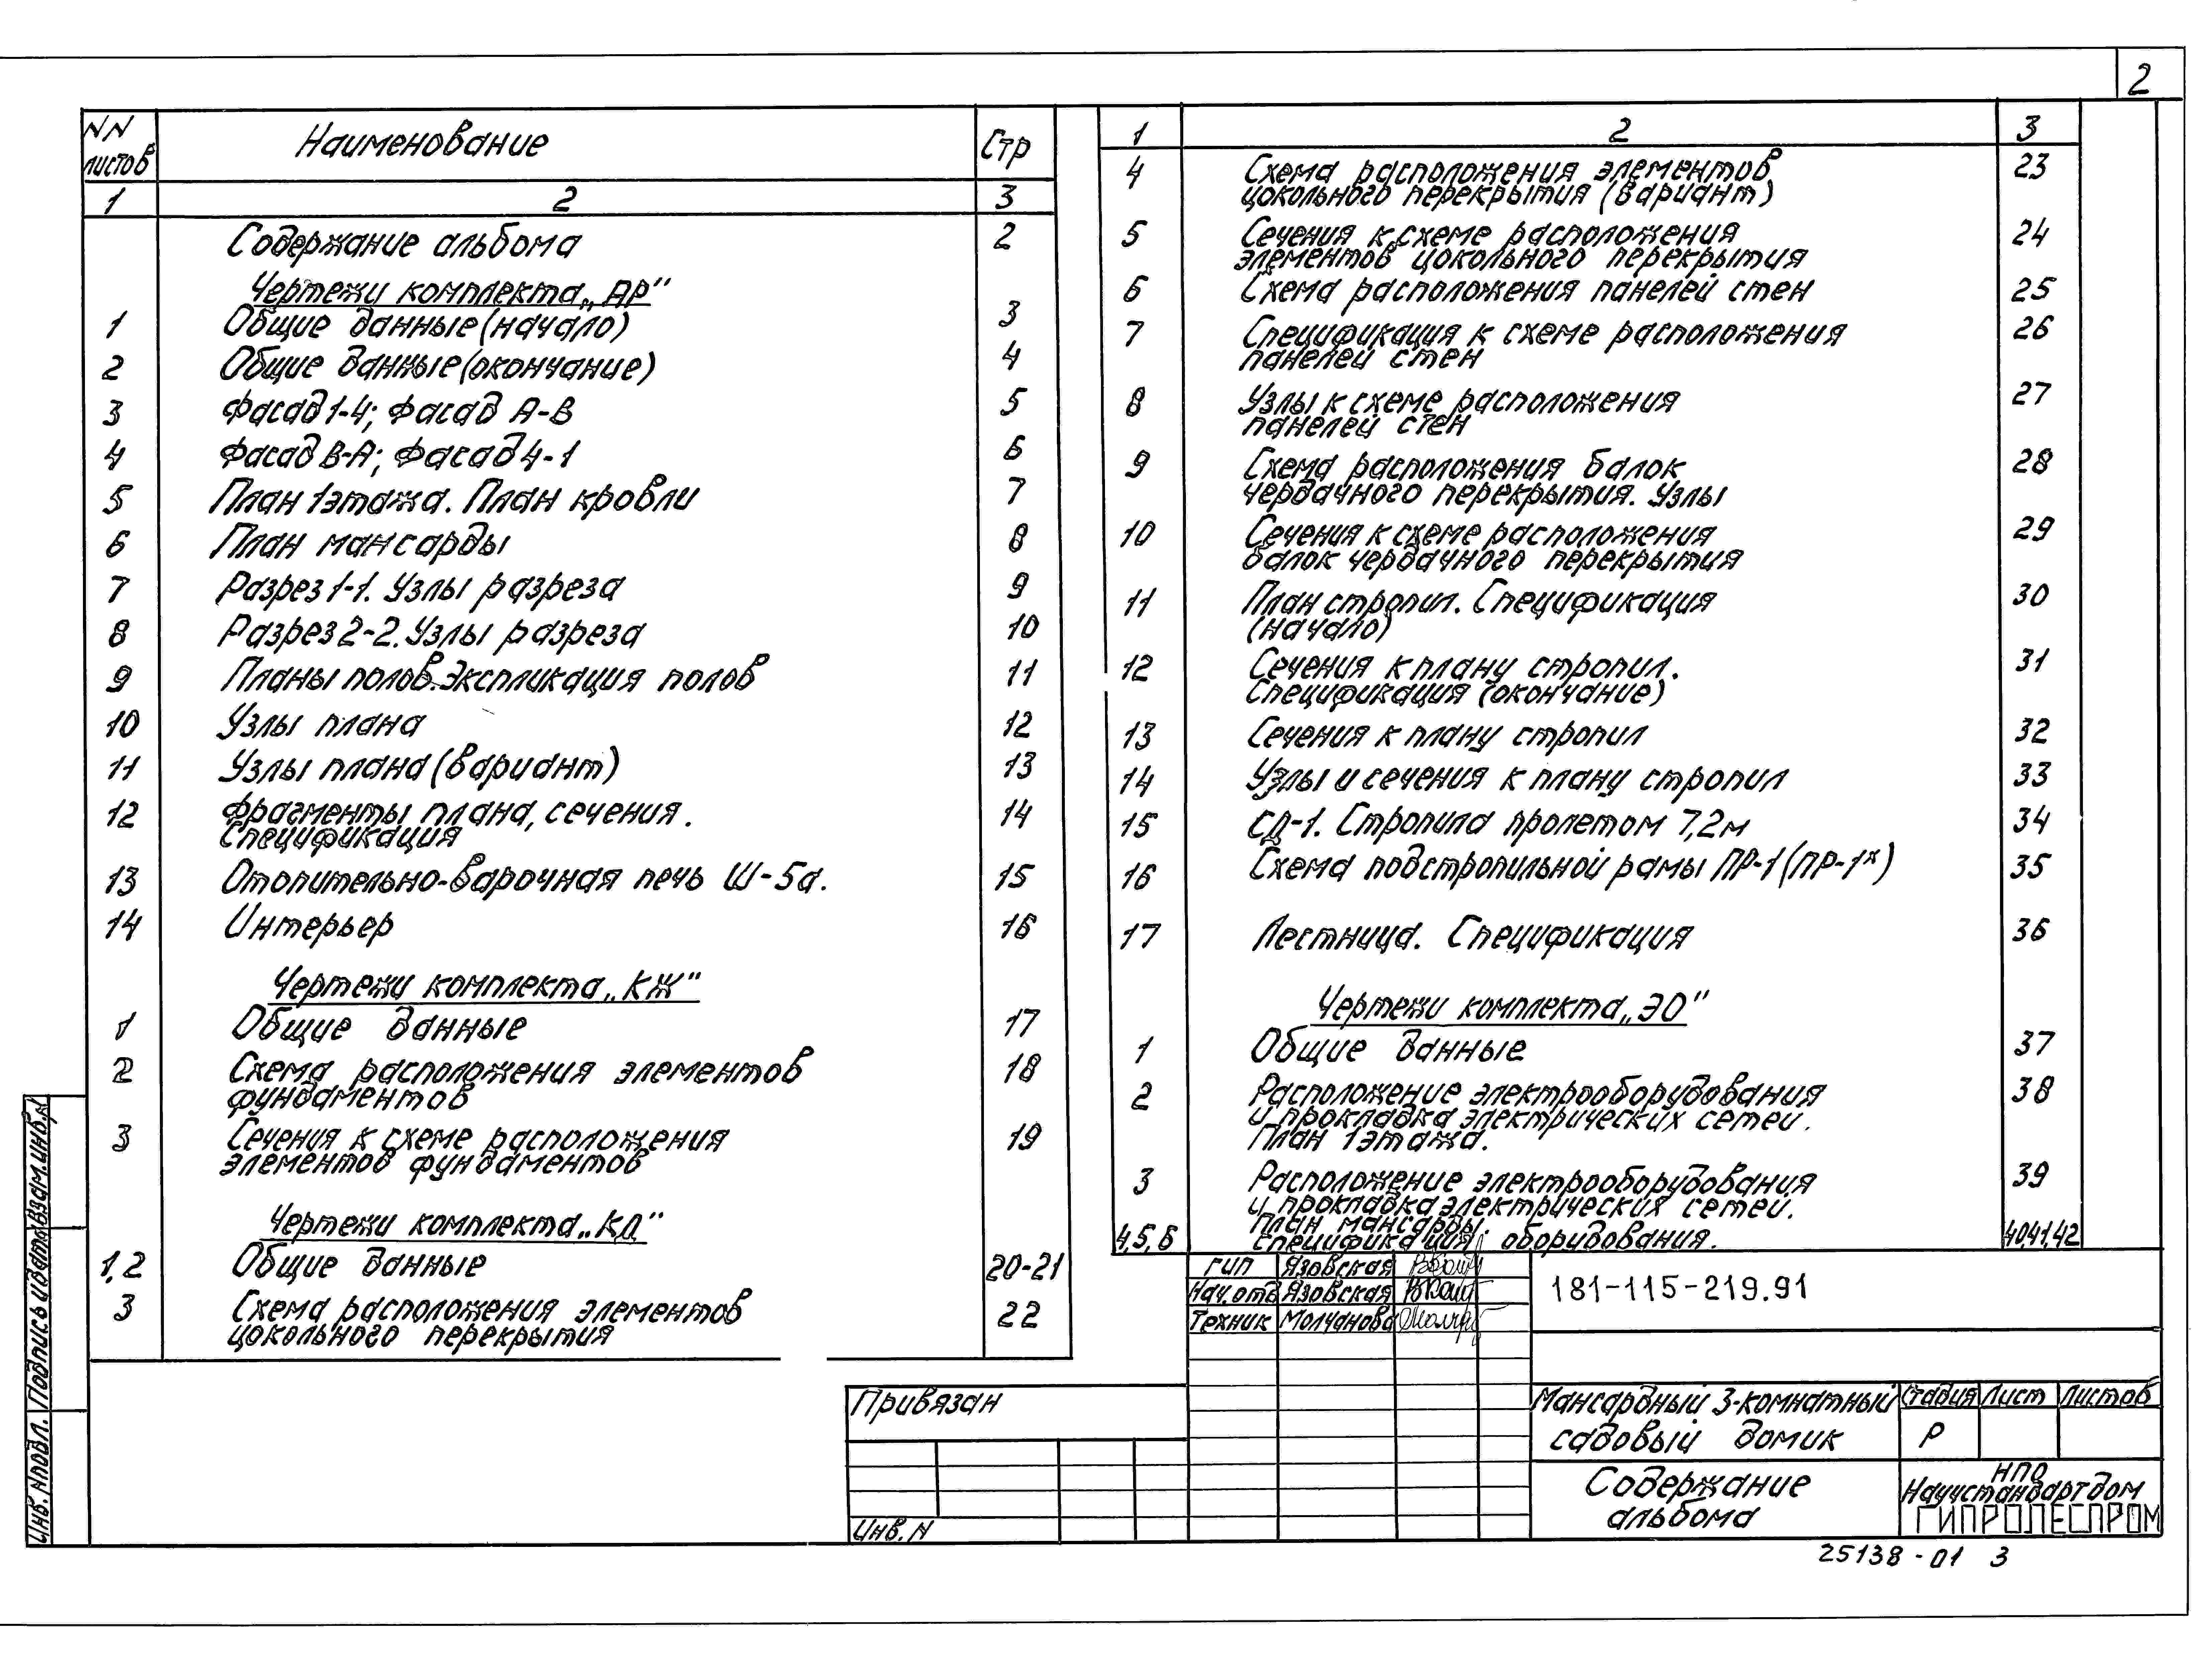 2
NN листов Наименование Стр
1 2 3
Содержание альбома 2
Чертежи комплекта „АР"
1 Общие данные (начало) 3
2 Общие данные (окончание) 4
3 Фасад 1-4; Фасад А-В 5
4 Фасад В-А; Фасад 4-1 6
5 План 1 этажа. План кровли 7
6 План мансарды 8
7 Разрез 1-1. Узлы разреза 9
8 Разрез 2-2. Узлы разреза 10
9 Планы полов. Экспликация полов 11
10 Узлы плана 12
11 Узлы плана (вариант) 13
12 Фрагменты плана, сечения. 14
Спецификация
13 Отопительно-варочная печь Ш-5а. 15
14 Интерьер 16
Чертежи комплекта „КЖ"
1 Общие данные 17
2 Схема расположения элементов 18
фундаментов
3 Сечения к схеме расположения 19
элементов фундаментов
Чертежи комплекта „КД"
1,2 Общие данные 20-21
3 Схема расположения элементов 22
цокольного перекрытия
1 2 3
4 Схема расположения элементов 23
цокольного перекрытия (вариант)
5 Сечения к схеме расположения 24
элементов цокольного перекрытия
6 Схема расположения панелей стен 25
7 Спецификация к схеме расположения 26
панелей стен
8 Узлы к схеме расположения 27
панелей стен
9 Схема расположения балок 28
чердачного перекрытия. Узлы
10 Сечения к схеме расположения 29
балок чердачного перекрытия
11 План стропил. Спецификация 30
(начало)
12 Сечения к плану стропил. 31
Спецификация (окончание)
13 Сечения к плану стропил 32
14 Узлы и сечения к плану стропил 33
15 СД-1. Стропила пролетом 7,2м 34
16 Схема подстропильной рамы ПР-1 (ПР-1*) 35
17 Лестница. Спецификация 36
Чертежи комплекта „ЭО"
1 Общие данные 37
2 Расположение электрооборудования 38
и прокладка электрических сетей.
План 1 этажа.
3 Расположение электрооборудования 39
и прокладка электрических сетей.
План мансарды.
4,5,6 Спецификация оборудования. 40,41,42
ГИП Язовская
Нач.отд Язовская
Техник Молчанова
181-115-219.91
Привязан
Инв. N
Мансардный 3-комнатный
садовый домик
Стадия Лист Листов
Р
Содержание
альбома
НПО
Научстандартдом
ГИПРОЛЕСПРОМ
25138-01 3
Инв. N подл. Подпись и дата Взам. инв. N